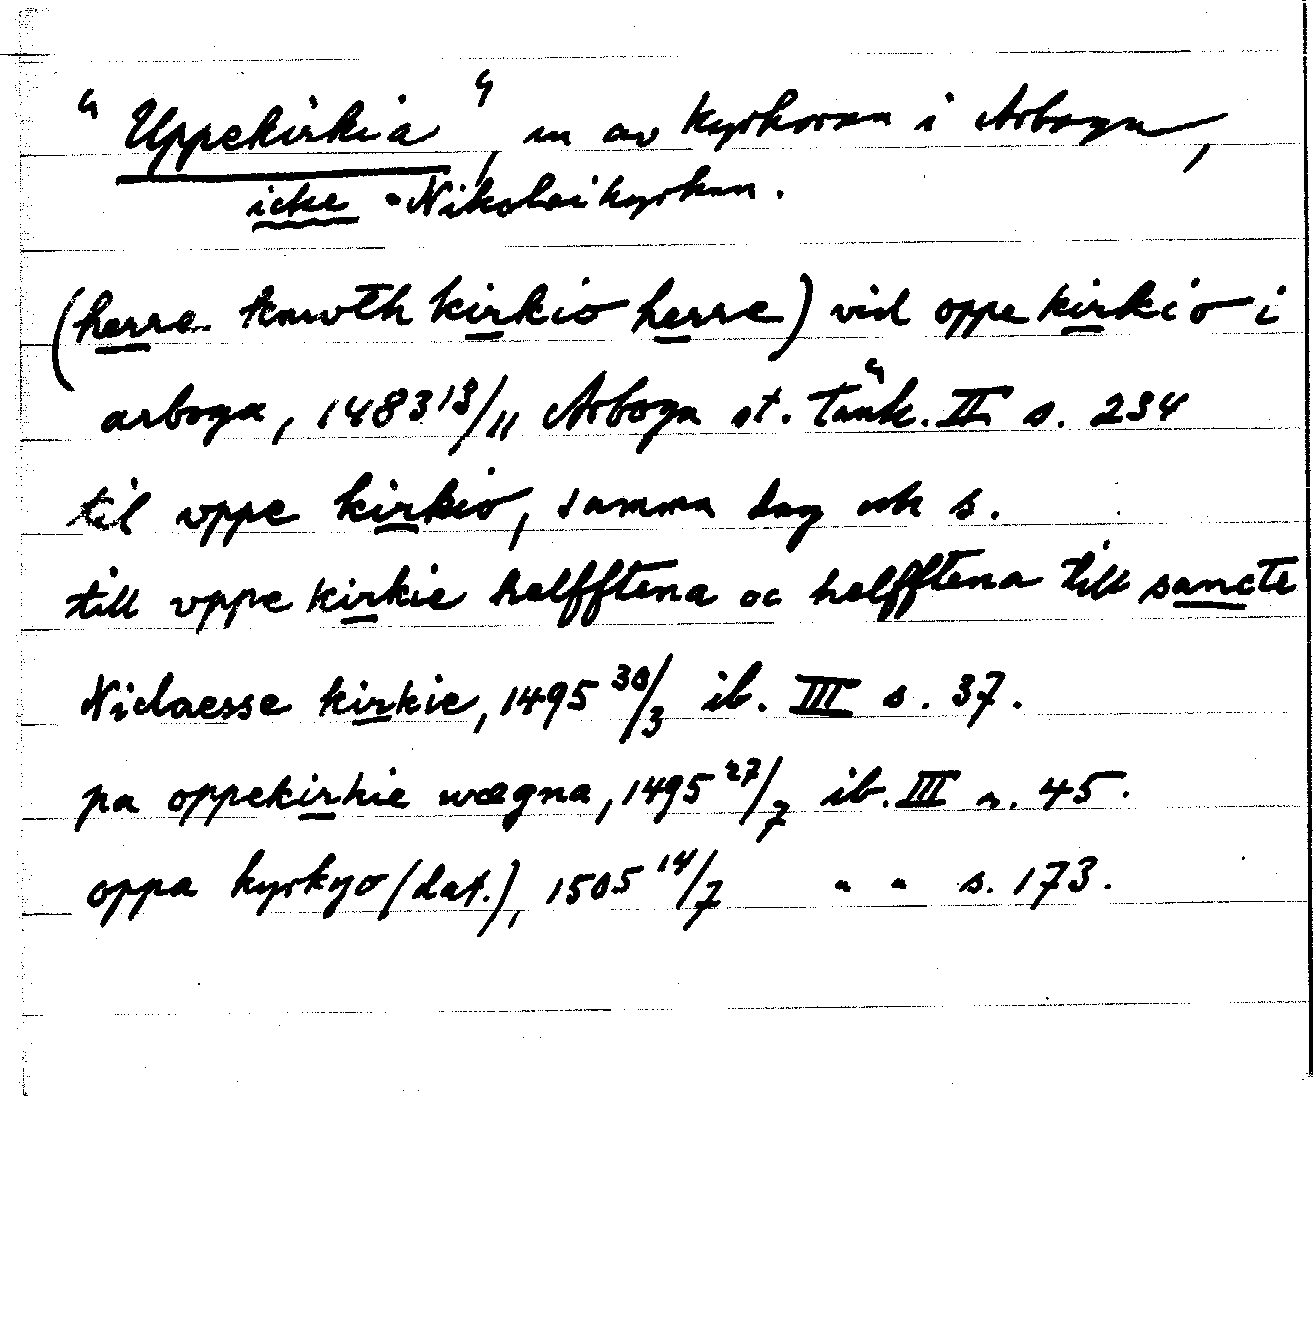 "Uppekirkia", en av kyrkorna i Arboga,
icke = Nikolaikyrkan.
(herre knwth kirkio herre) vid oppe kirkio i
arboga, 1483 13/11 Arboga st. Tänk. II s. 234
til vppe kirkio, samma dag och s.
till vppe kirkie helfftena oc helfftena till sancte
Niclaesse kirkie, 1495 30/3 ib. III s. 37.
pa oppekirkie wægna, 1495 27/7 ib. III s. 45.
oppa kyrkyo (dat.), 1505 14/7 " " s. 173.